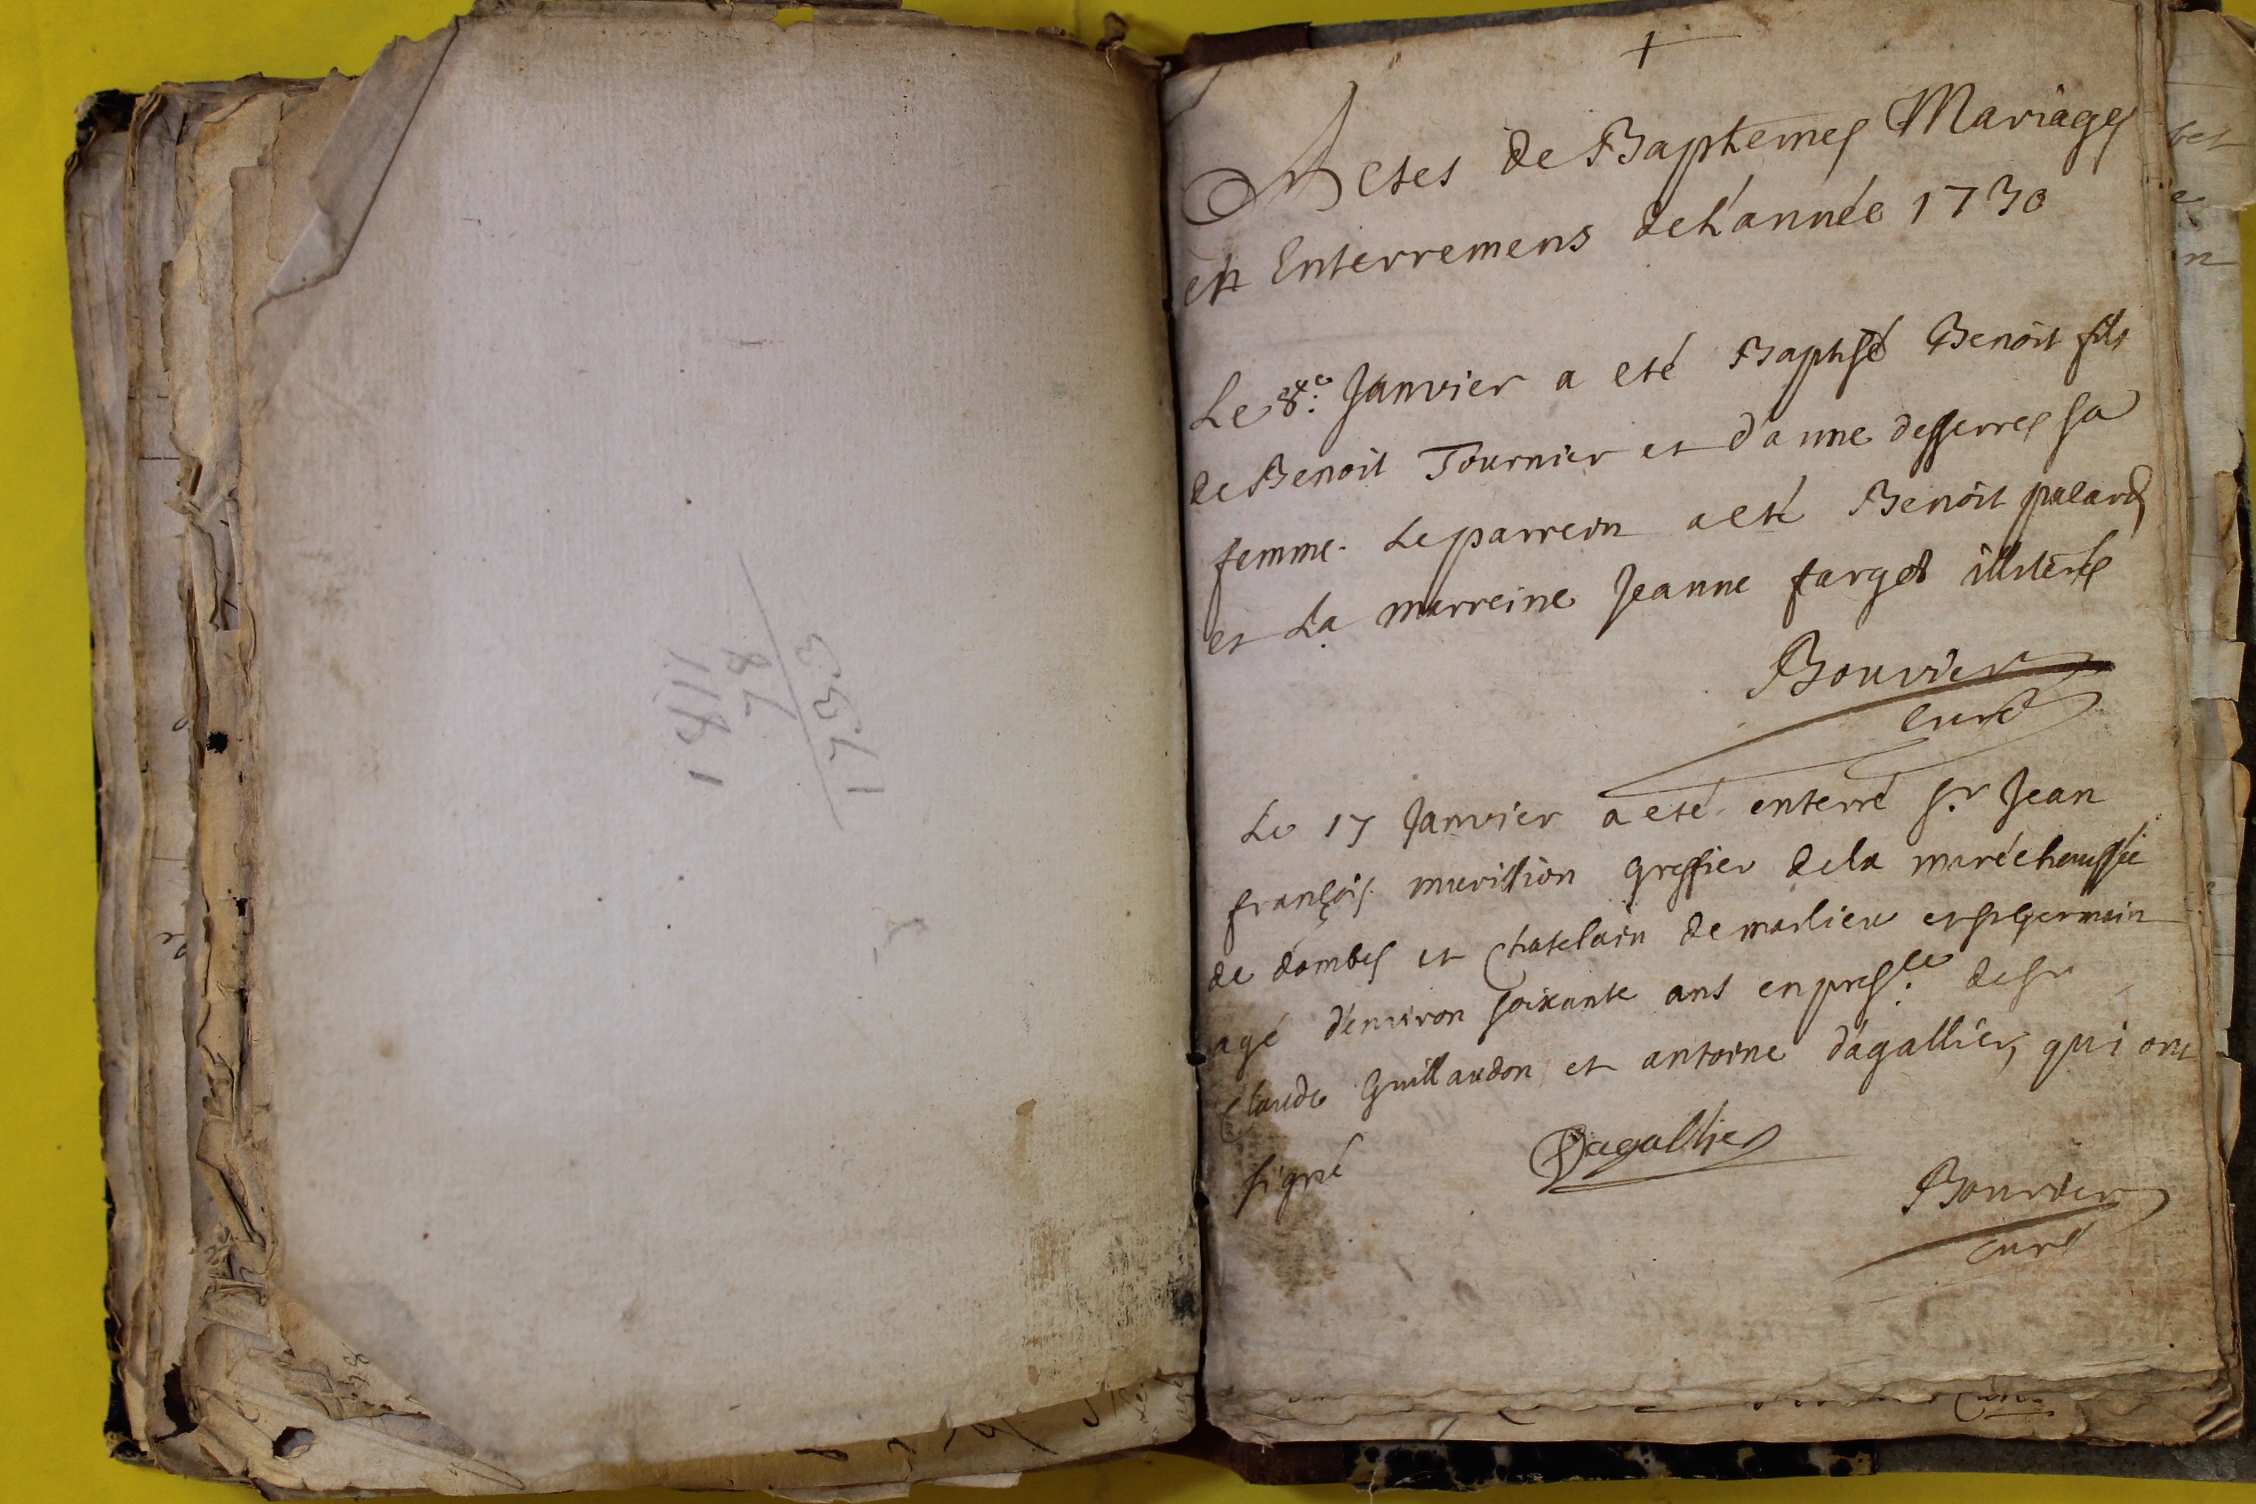 1811
78
1733
+
Actes de Baptemes Mariages
et Enterremens de L'année 1730
Le 8.e Janvier a eté Baptisé Benoit fils
de Benoit Tournier et d'anne desserres sa
femme. Le parrein a eté Benoit palard
et La marreine Jeanne farget illiterés
Bouvier
curé
Le 17 Janvier a eté enterré sr Jean
françois greffier de la maréchaussée
de dombes et Chatelain de marlieu et st germain
agé d'environ soixante ans en presce. de sr
Claude Guillaudon et antoine d'agallier, qui ont
signé
Dagallier
Bouvier
curé